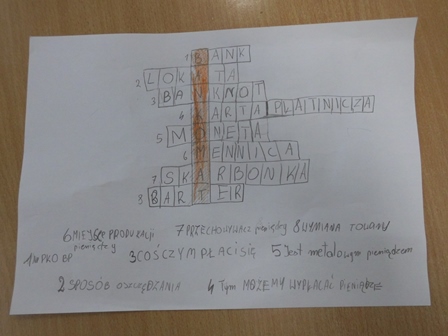 1 BANK
2 LOKATA
3 BANKNOT
4 KARTA PŁATNICZA
5 MONETA
6 MENNICA
7 SKARBONKA
8 BARTER
6 MIEJSCE PRODUKCJI pieniędzy 7 PRZECHOWYWACZ pieniędzy 8 WYMIANA TOWARU
1 NP PKO BP 3 COŚ CZYM PŁACI SIĘ 5 Jest metalowym pieniądzem
2 SPOSÓB OSZCZĘDZANIA 4 Tym MOŻEMY WYPŁACAĆ PIENIĄDZE